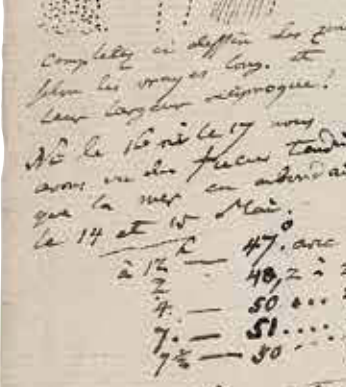 completez ce dessin des zon
selon les vrayes long. et
leur largeur réciproque!
Ni le 16 ni le 17 nous
avons vu des fucus tandi
que la mer en abondai
le 14 et 15 Mai.
à 12h — 47.° avec
2 — 48,2 à 2
4. — 50 ...
7. — 51....
7½ — 50 ....